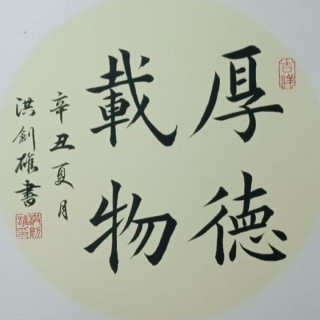 厚德
載物
辛丑夏月
洪創雄書
吉祥